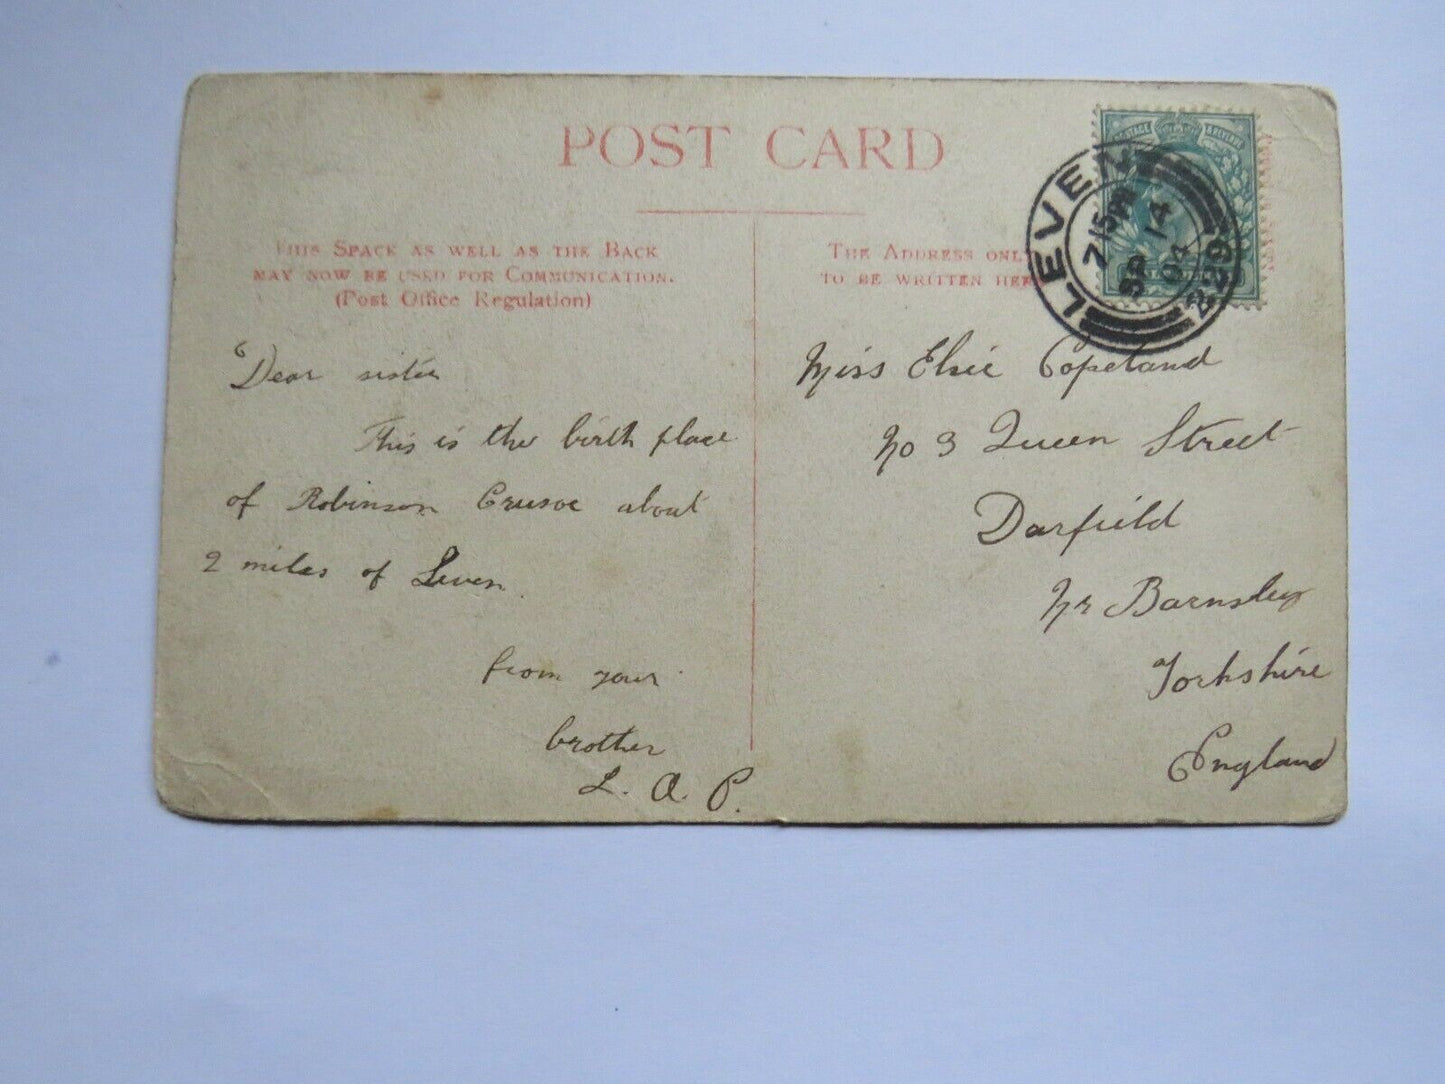 POST CARD
THIS SPACE AS WELL AS THE BACK
MAY NOW BE USED FOR COMMUNICATION.
(Post Office Regulation)
THE ADDRESS ONLY
TO BE WRITTEN HERE
POSTAGE & REVENUE
LEVEN
7 15 PM
SP 14
04
229
Dear sister
This is the birth place
of Robinson Crusoe about
2 miles of Leven.
from your
brother
L. A. P.
Miss Elsie Copeland
No 3 Queen Street
Darfield
Nr Barnsley
Yorkshire
England